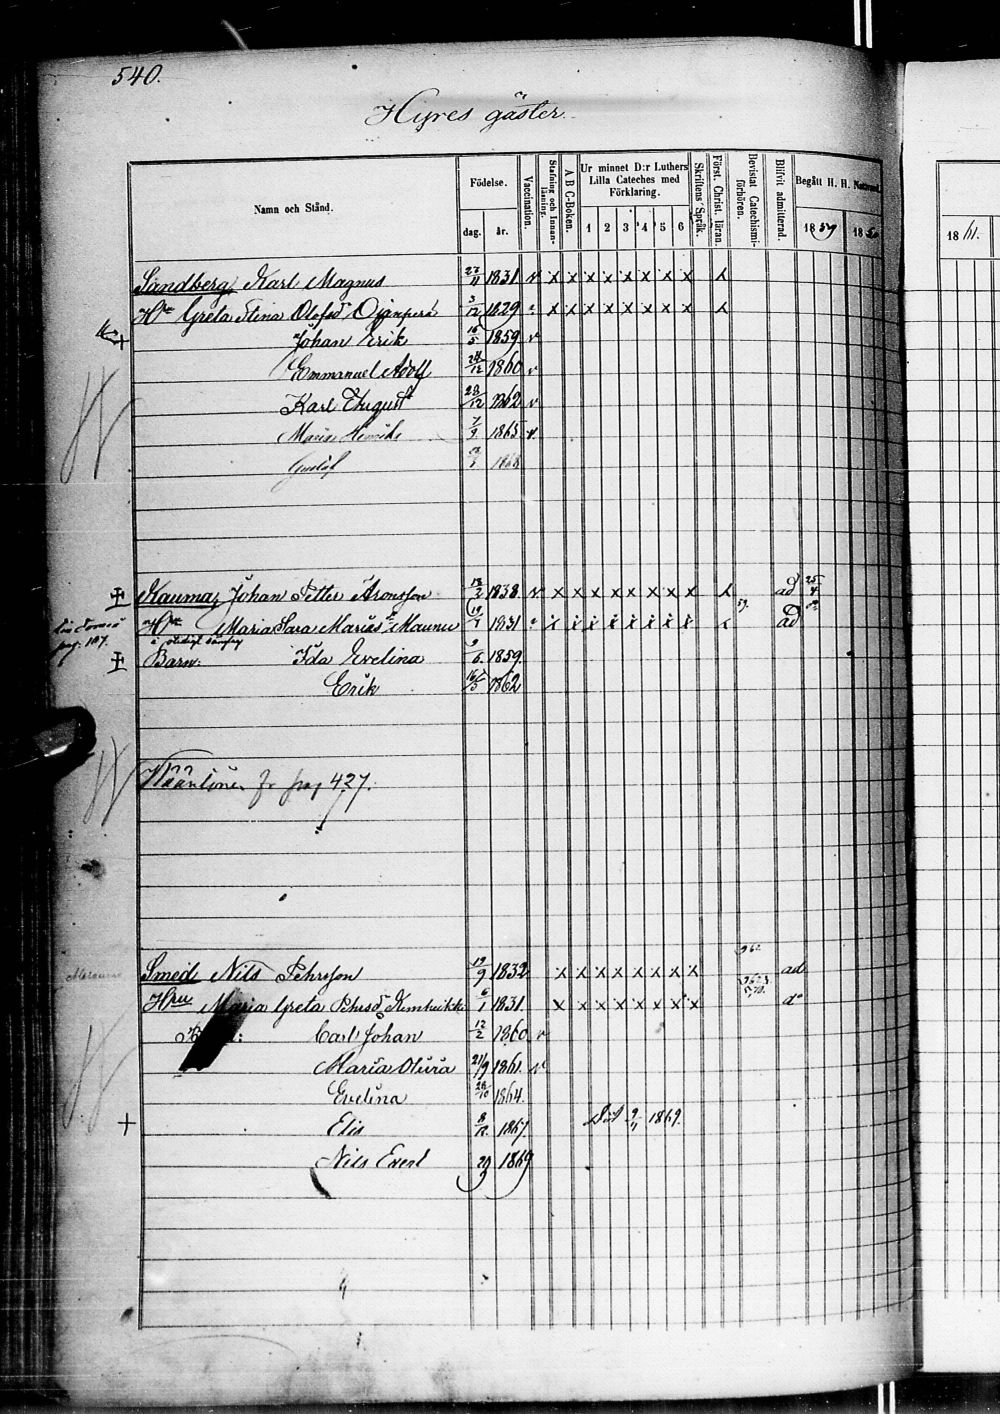 540.
Hyres gäster.
Namn och Stånd.
Födelse.
dag. år.
Vaccination.
Stafning och Innanläsning.
A B C-Boken.
Ur minnet D:r Luthers Lilla Cateches med Förklaring.
1 2 3 4 5 6
Skriftens Språk.
Först. Christ. läran.
Bevistat Catechismiförhören.
Blifvit admitterad.
Begått H. H. Nattvard.
1859 18
1861.
Sandberg Karl Magnus 27/11 1831 v x x x x x x x x
Hru Greta Stina Olofsdr Ojanperä 3/12 1829 x x x x x x x x
Johan Erik 16/5 1859 v
Emmanuel Adolf 24/12 1860 v
Karl August 28/12 1862 v
Maria Henrika 7/9 1865 v
Gustaf 1868
Kaumaz Johan Petter Aronsson 13/2 1838 v x x x x x x x x ad 25/4
Hru Maria Sara Mariæ Maunu 19/1 1831 x x x x x x x x 59. ad
pag. 187.
Barn: Ida Evelina 9/6 1859.
Erik 16/5 1862
Wääntinen fr pag 427.
Smed Nils Pehrsson 19/9 1832 x x x x x x x x ad
Hru Maria Greta Pehrsdr 6/1 1831. x x x x x x x x do
Carl Johan 12/2 1860 v
Maria Olivia 21/9 1861. v
Evelina 26/10 1864.
Elis 8/12 1867. Död 9/11 1869.
Nils Evert 29/9 1869